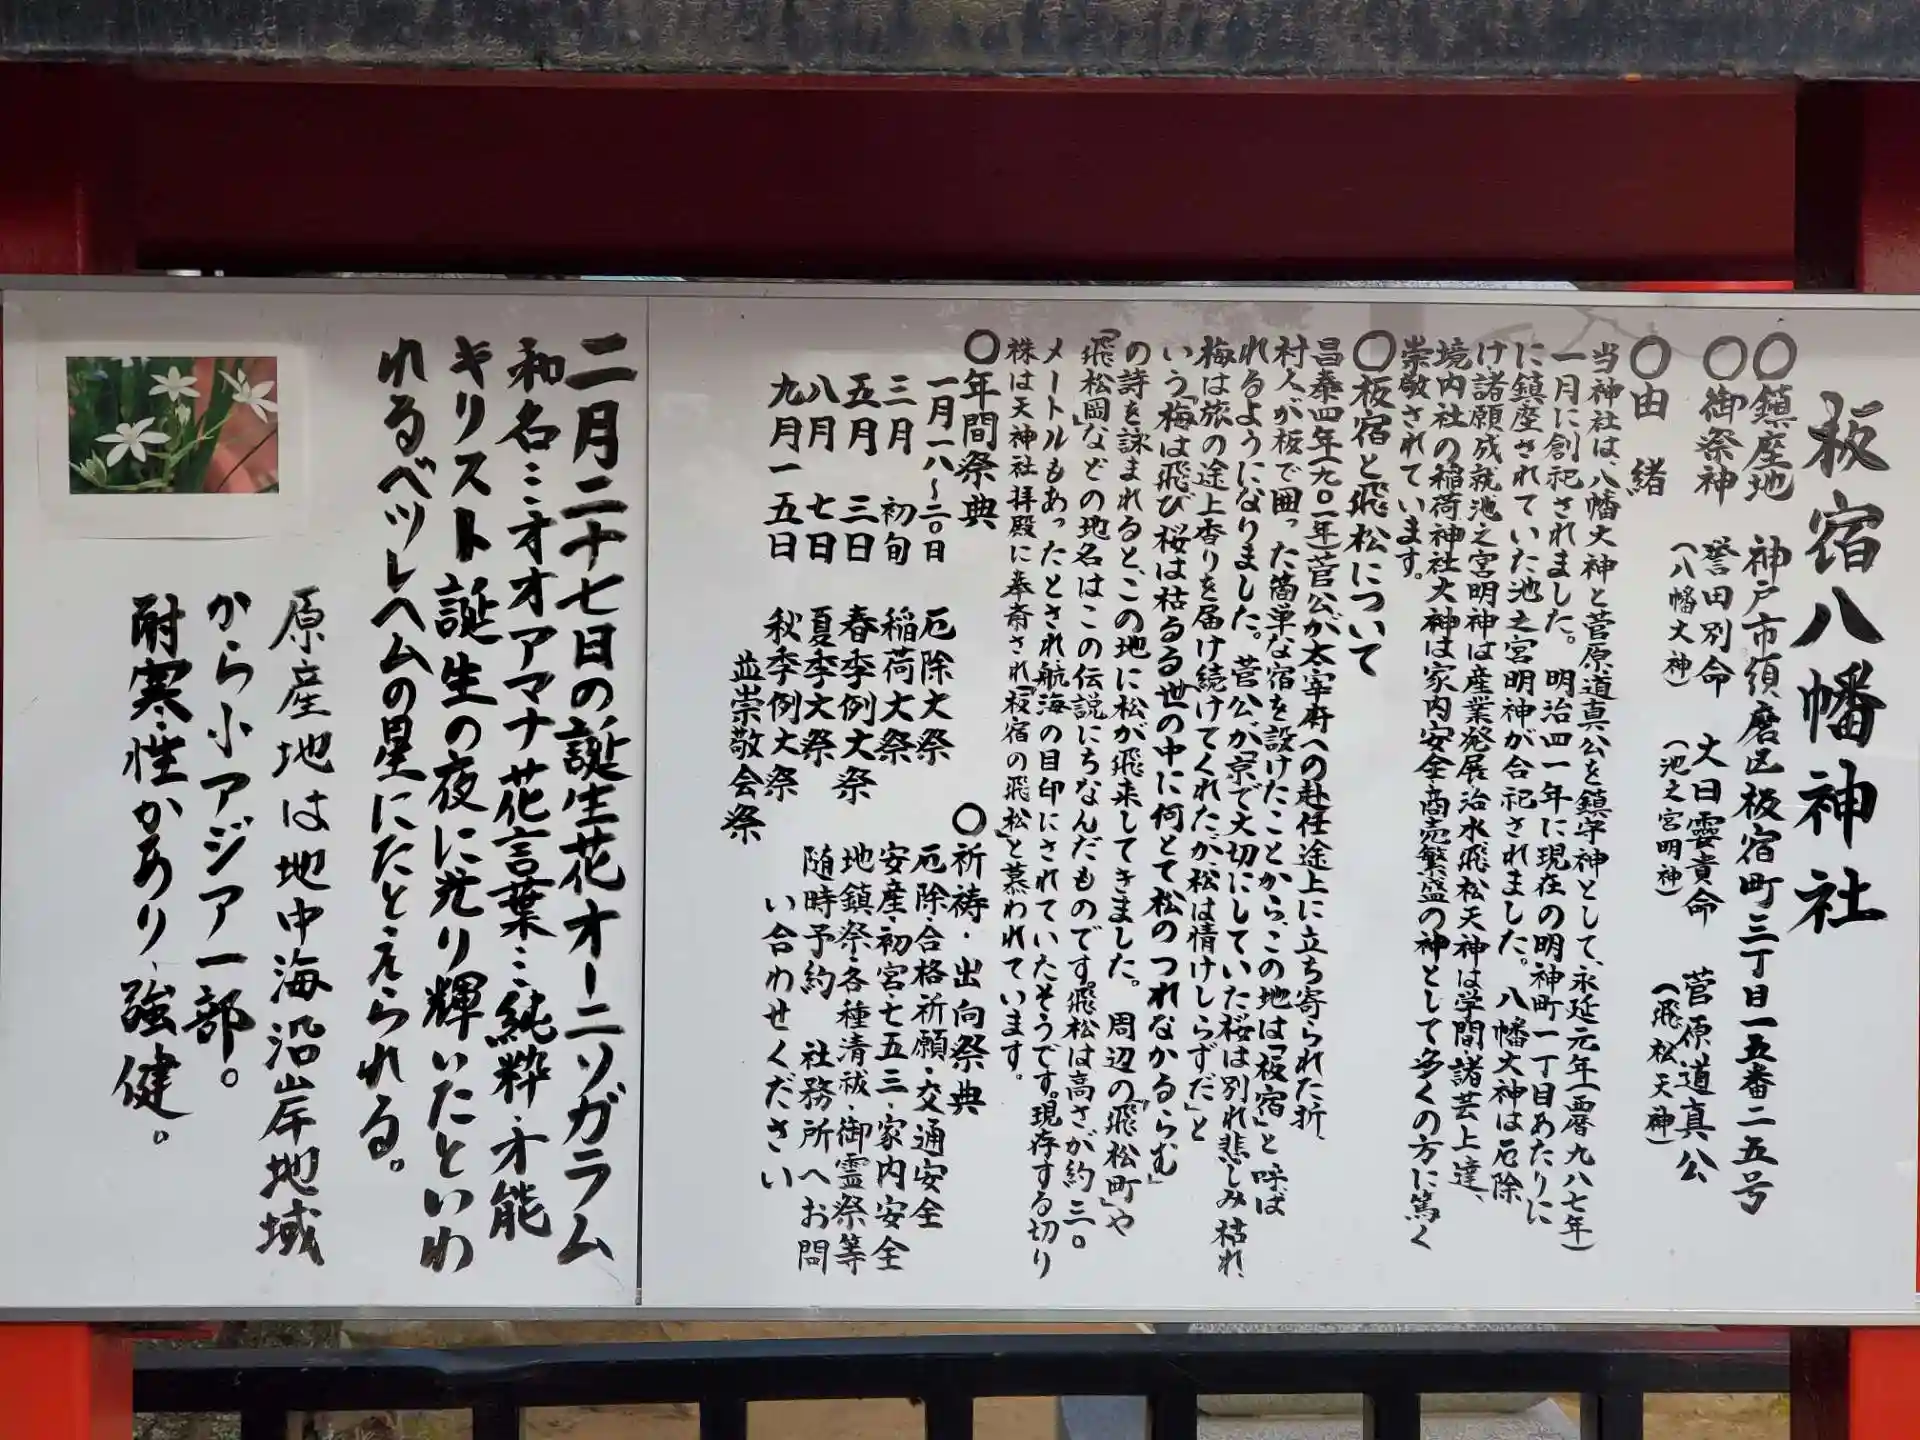 板宿八幡神社
〇鎮座地　神戸市須磨区板宿町三丁目一五番二五号
〇御祭神　誉田別命　大日孁貴命　菅原道真公
（八幡大神）　（池之宮明神）　（飛松天神）
〇由　緒
当神社は、八幡大神と菅原道真公を鎮守神として、永延元年（西暦九八七年）
一月に創祀されました。明治四一年に現在の明神町一丁目あたりに
に鎮座されていた池之宮明神が合祀されました。八幡大神は厄除
け諸願成就池之宮明神は産業発展治水飛松天神は学問諸芸上達、
境内社の稲荷神社大神は家内安全商売繁盛の神として多くの方に篤く
崇敬されています。
〇板宿と飛松について
昌泰四年（九〇一年）菅公が太宰府への赴任途上に立ち寄られた折、
村人が板で囲った簡単な宿を設けたことから、この地は「板宿」と呼ば
れるようになりました。菅公が京で大切にしていた桜は別れ悲しみ枯れ、
梅は旅の途上香りを届け続けてくれたが、松は情けしらずだ」と
いう「梅は飛び桜は枯るる世の中に何とて松のつれなかるらむ」
の詩を詠まれると、この地に松が飛来してきました。周辺の「飛松町」や
「飛松岡」などの地名はこの伝説にちなんだものです。飛松は高さが約三〇
メートルもあったとされ航海の目印にされていたそうです。現存する切り
株は天神社拝殿に奉斎され「板宿の飛松」と慕われています。
〇年間祭典
一月一八〜二〇日　厄除大祭
三月　初旬　稲荷大祭
五月　三日　春季例大祭
八月　七日　夏季大祭
九月一五日　秋季例大祭
並崇敬会祭
〇祈祷・出向祭典
厄除合格祈願・交通安全
安産・初宮・七五三・家内安全
地鎮祭・各種清祓・御霊祭等
随時予約　社務所へお問
い合わせください
二月二十七日の誕生花オーニソガラム
和名…オオアマナ花言葉…純粋・才能
キリスト誕生の夜に光り輝いたといわ
れるベツレヘムの星にたとえられる。
原産地は地中海沿岸地域
から小アジア一部。
耐寒性があり、強健。